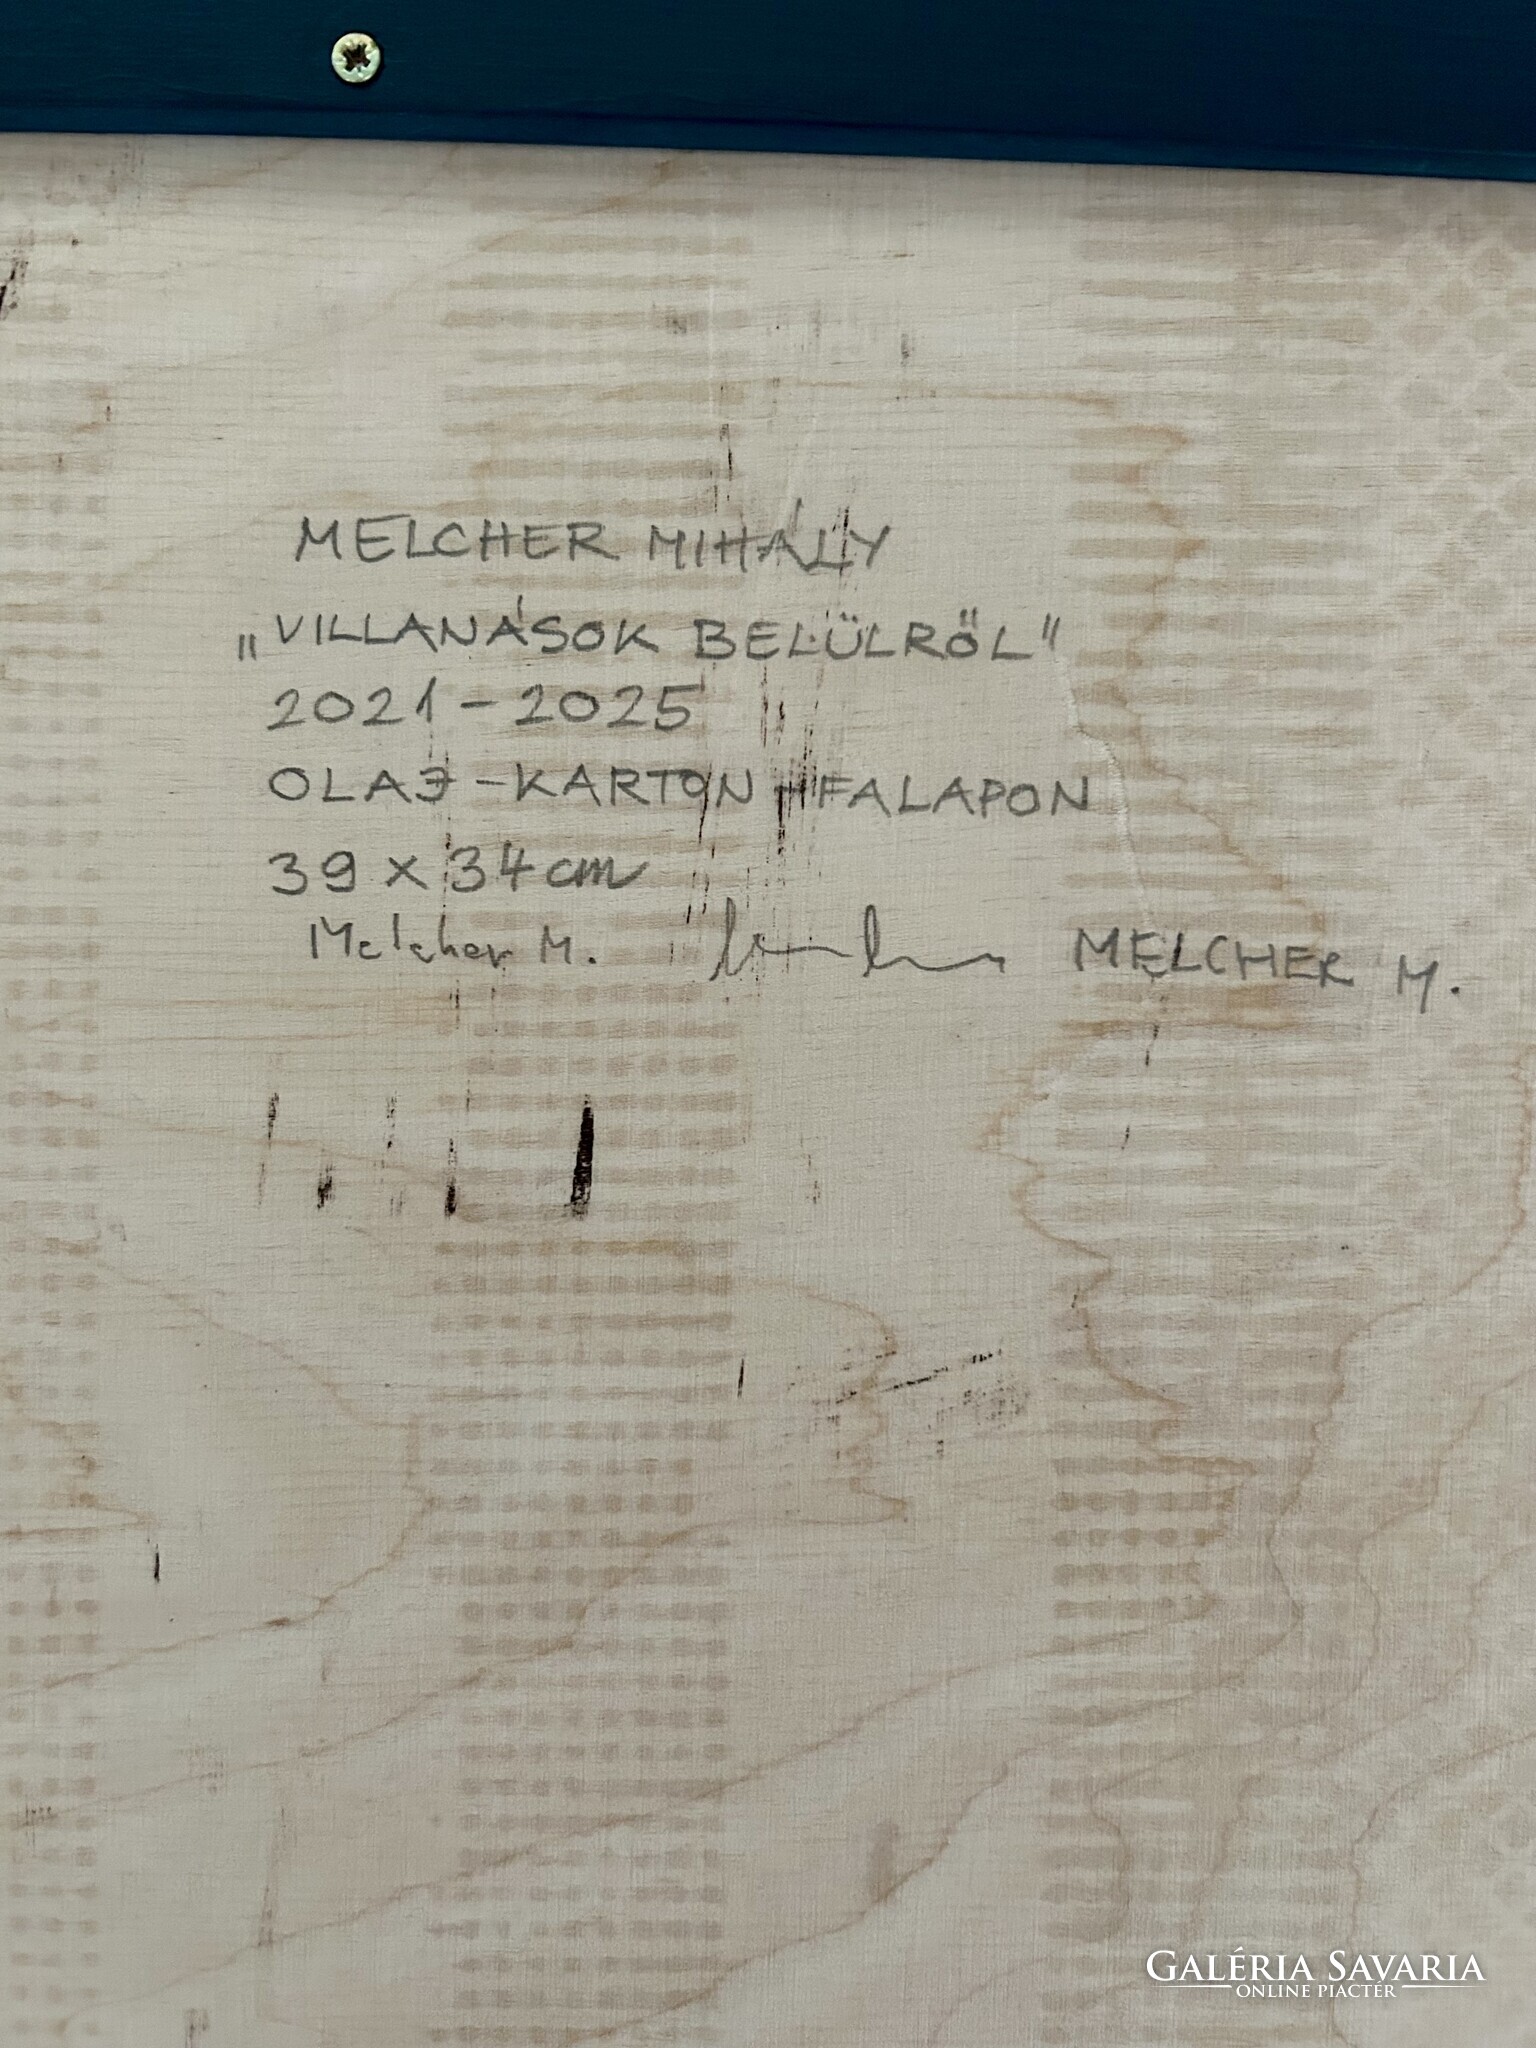 MELCHER MIHÁLY
„VILLANÁSOK BELÜLRŐL"
2021-2025
OLAJ-KARTON-FALAPON
39 x 34 cm
Melcher M. MELCHER M.
GALÉRIA SAVARIA
ONLINE PIACTÉR